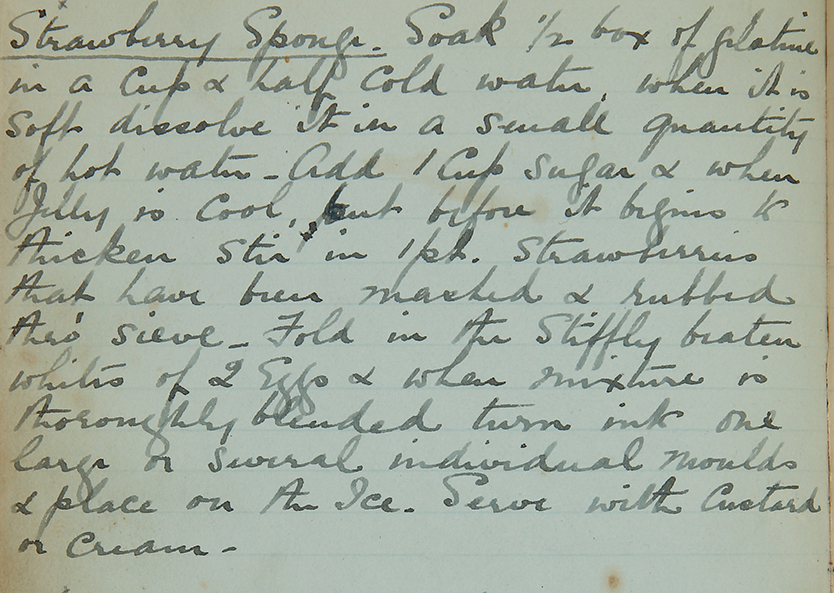 Strawberry Sponge. Soak 1/2 box of glatine
in a Cup & half Cold water, when it is
Soft dissolve it in a small quantity
of hot water - Add 1 Cup Sugar & when
Jelly is Cool, but before it begins to
thicken Stir in 1 pt. Strawberries
that have been mashed & rubbed
thro' sieve - Fold in the Stiffly beaten
whites of 2 Eggs & when mixture is
thoroughly blended turn into one
large or several individual moulds
& place on the Ice. Serve with Custard
or Cream -